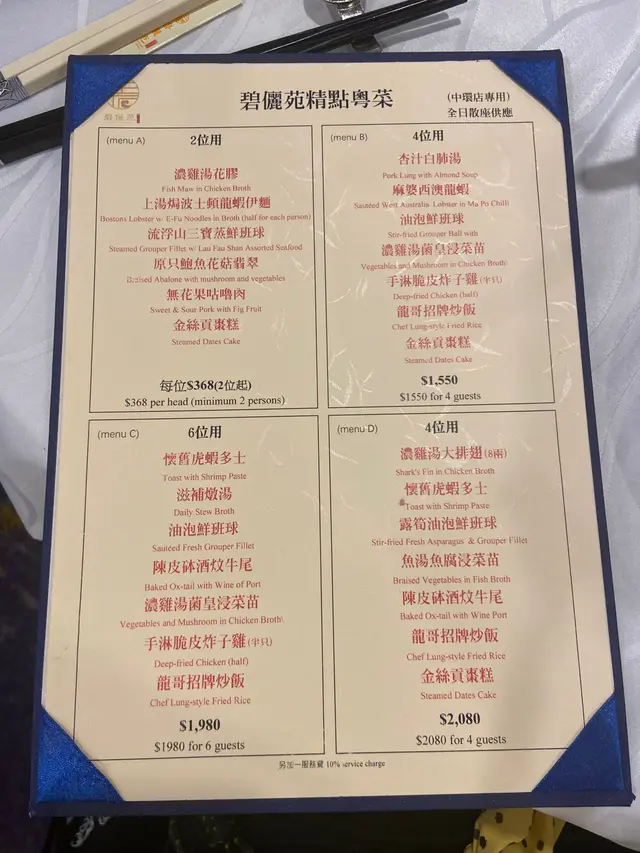 碧儷苑精點粵菜
(中環店專用)
全日散座供應
(menu A)
2位用
濃雞湯花膠
Fish Maw in Chicken Broth
上湯焗波士頓龍蝦伊麵
Bostons Lobster w/ E-Fu Noodles in Broth (half for each person)
流浮山三寶蒸鮮班球
Steamed Grouper Fillet w/ Lau Fau Shan Assorted Seafood
原只鮑魚花菇翡翠
Braised Abalone with mushroom and vegetables
無花果咕嚕肉
Sweet & Sour Pork with Fig Fruit
金絲貢棗糕
Steamed Dates Cake
每位$368(2位起)
$368 per head (minimum 2 persons)
(menu B)
4位用
杏汁白肺湯
Pork Lung with Almond Soup
麻婆西澳龍蝦
Sautéed West Australia Lobster in Ma Po Chilli
油泡鮮班球
Stir-fried Grouper Ball with
濃雞湯菌皇浸菜苗
Vegetables and Mushroom in Chicken Broth\
手淋脆皮炸子雞(半只)
Deep-fried Chicken (half)
龍哥招牌炒飯
Chef Lung-style Fried Rice
金絲貢棗糕
Steamed Dates Cake
$1,550
$1550 for 4 guests
(menu C)
6位用
懷舊虎蝦多士
Toast with Shrimp Paste
滋補燉湯
Daily Stew Broth
油泡鮮班球
Sautéed Fresh Grouper Fillet
陳皮砵酒炆牛尾
Baked Ox-tail with Wine of Port
濃雞湯菌皇浸菜苗
Vegetables and Mushroom in Chicken Broth\
手淋脆皮炸子雞(半只)
Deep-fried Chicken (half)
龍哥招牌炒飯
Chef Lung-style Fried Rice
$1,980
$1980 for 6 guests
(menu D)
4位用
濃雞湯大排翅(8兩)
Shark's Fin in Chicken Broth
懷舊虎蝦多士
Toast with Shrimp Paste
露筍油泡鮮班球
Stir-fried Fresh Asparagus & Grouper Fillet
魚湯魚腐浸菜苗
Braised Vegetables in Fish Broth
陳皮砵酒炆牛尾
Baked Ox-tail with Wine Port
龍哥招牌炒飯
Chef Lung-style Fried Rice
金絲貢棗糕
Steamed Dates Cake
$2,080
$2080 for 4 guests
另加一服務費 10% service charge